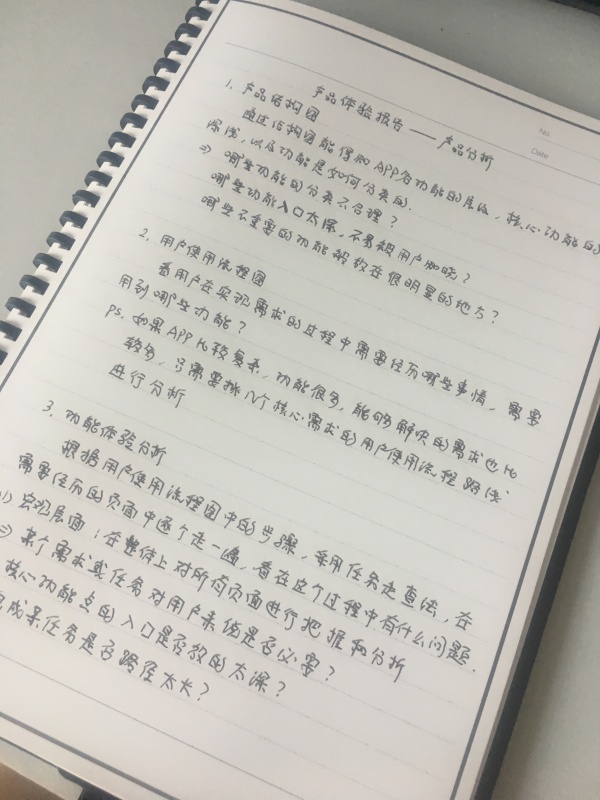 No.
Date
产品体验报告——产品分析
1. 产品结构图
通过结构图能得知APP各功能的层级,核心功能的
深浅,以及功能是如何分类的.
⇒ 哪些功能的分类不合理?
哪些功能入口太深,不易被用户知晓?
哪些不重要的功能被放在很明显的地方?
2. 用户使用流程图
看用户在实现需求的过程中需要经历哪些事情,需要
用到哪些功能?
PS. 如果APP比较复杂,功能很多,能够解决的需求也比
较多,只需要挑几个核心需求的用户使用流程路线
进行分析
3. 功能体验分析
根据用户使用流程图中的步骤,采用任务走查法,在
需要经历的页面中逐个走一遍,看在这个过程中有什么问题.
1) 宏观层面:在整体上对所有页面进行把握和分析
⇒ 某个需求或任务对用户来说是否必要?
核心功能点的入口是否放的太深?
完成某任务是否路径太长?